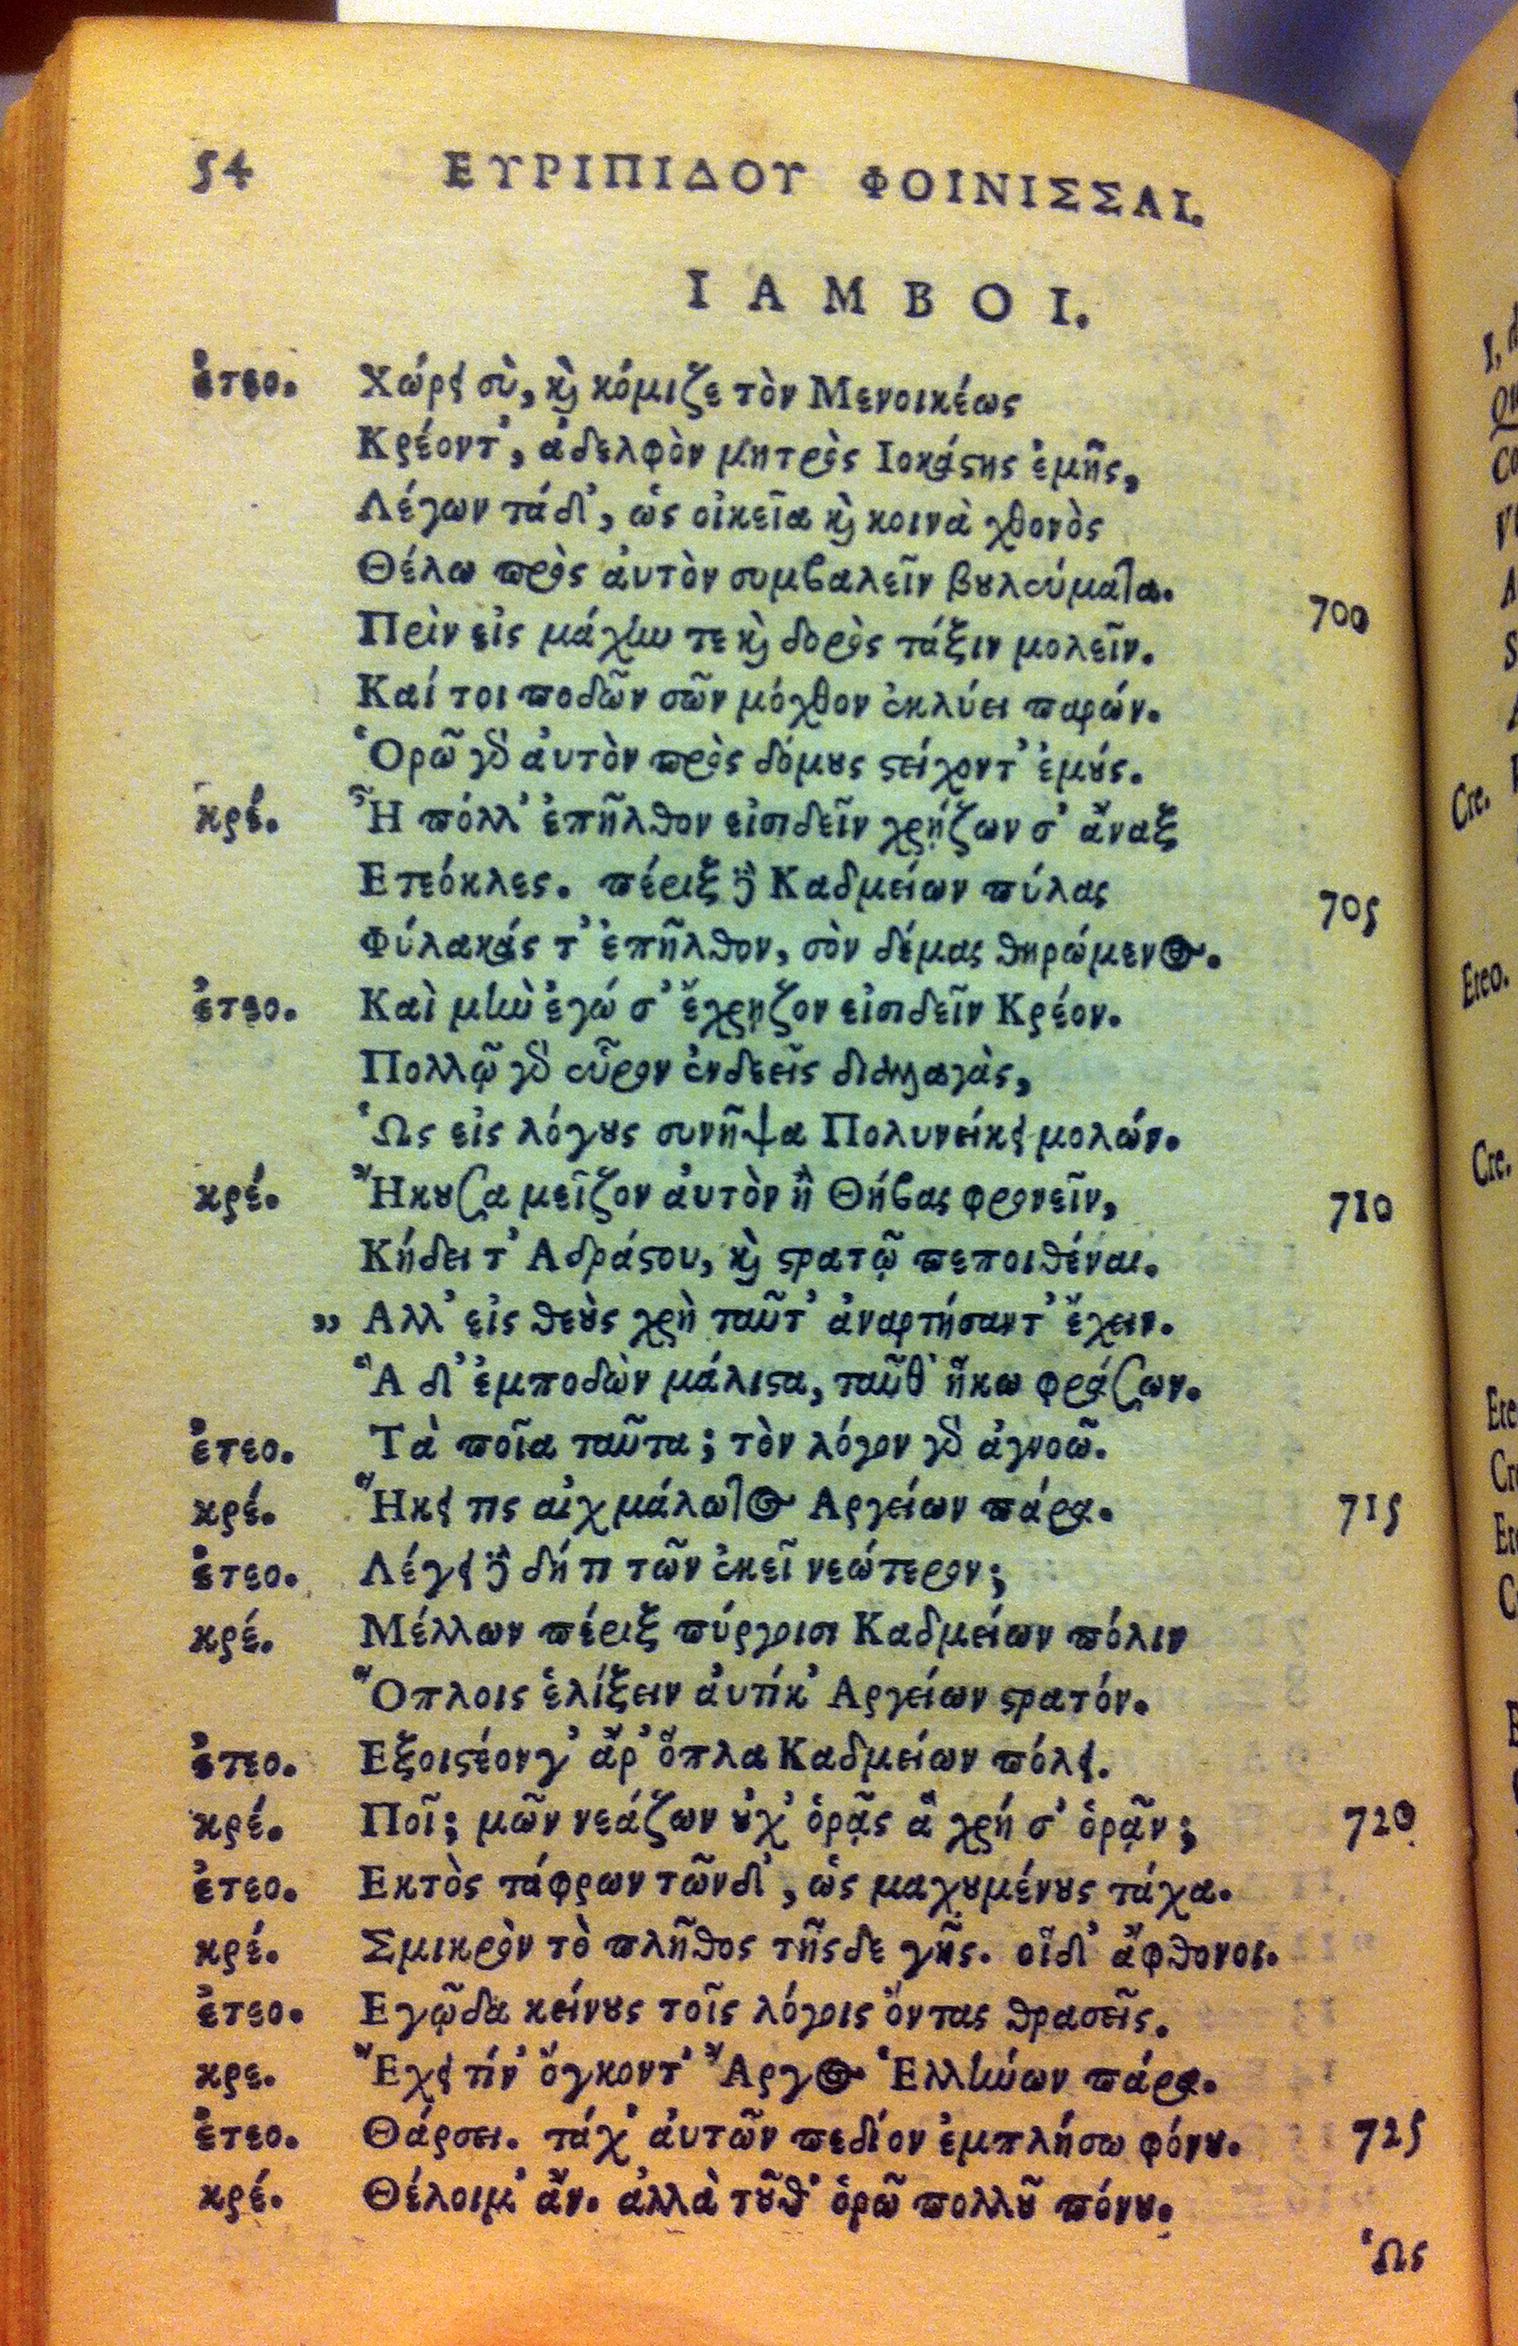 54 ΕΥΡΙΠΙΔΟΥ ΦΟΙΝΙΣΣΑΙ.
ΙΑΜΒΟΙ.
ἐτεο. Χώρει σὺ, καὶ κόμιζε τὸν Μενοικέως
Κρέοντ', ἀδελφὸν μητρὸς Ιοκάστης ἐμῆς,
Λέγων τάδ', ὡς οἰκεῖα καὶ κοινὰ χθονὸς
Θέλω πρὸς ἀυτὸν συμβαλεῖν βουλεύματα.
Πρὶν εἰς μάχην τε καὶ δορὸς τάξιν μολεῖν. 700
Καί τοι ποδῶν σῶν μόχθον ἐκλύει παρών.
Ὁρῶ γὰρ ἀυτὸν πρὸς δόμους στείχοντ' ἐμούς.
κρέ. Ἦ πόλλ' ἐπῆλθον εἰσιδεῖν χρῄζων σ' ἄναξ
Ετεόκλες. πέριξ δὲ Καδμείων πύλας 705
Φύλακάς τ' ἐπῆλθον, σὸν δέμας θηρώμενος.
ἐτεο. Καὶ μὴν ἐγώ σ' ἔχρῃζον εἰσιδεῖν Κρέον.
Πολλῷ γὰρ εὗρον ἐνδεεῖς διαλλαγὰς,
Ὡς εἰς λόγους συνῆψα Πολυνείκει μολών.
κρέ. Ἤκουσα μεῖζον ἀυτὸν ἢ Θήβας φρονεῖν, 710
Κήδει τ' Αδράστου, καὶ στρατῷ πεποιθέναι.
„ Αλλ' εἰς θεοὺς χρὴ ταῦτ' ἀναρτήσαντ' ἔχειν.
Ἃ δ' ἐμποδὼν μάλιστα, ταῦθ' ἥκω φράζων.
ἐτεο. Τὰ ποῖα ταῦτα; τὸν λόγον γὰρ ἀγνοῶ.
κρέ. Ἥκει τις αἰχμάλωτος Αργείων πάρα. 715
ἐτεο. Λέγει δὲ δή τι τῶν ἐκεῖ νεώτερον;
κρέ. Μέλλων πέριξ πύργοισι Καδμείων πόλιν
Ὅπλοις ἑλίξειν ἀυτίκ' Αργείων στρατόν.
ἐτεο. Εξοιστέον γ' ἄρ' ὅπλα Καδμείων πόλει.
κρέ. Ποῖ; μῶν νεάζων οὐχ' ὁρᾷς ἃ χρή σ' ὁρᾷν; 720
ἐτεο. Εκτὸς τάφρων τῶνδ', ὡς μαχουμένους τάχα.
κρέ. Σμικρὸν τὸ πλῆθος τῆσδε γῆς. οἵδ' ἄφθονοι.
ἐτεο. Εγῷδα κείνους τοῖς λόγοις ὄντας θρασεῖς.
κρε. Ἔχει τίν' ὄγκοντ' Ἄργος Ἑλλήνων πάρα.
ἐτεο. Θάρσει. τάχ' ἀυτῶν πεδίον ἐμπλήσω φόνου. 725
κρέ. Θέλοιμ' ἄν. ἀλλὰ τοῦθ' ὁρῶ πολλοῦ πόνου.
Ὡς
Cre.
Eteo.
Cre.